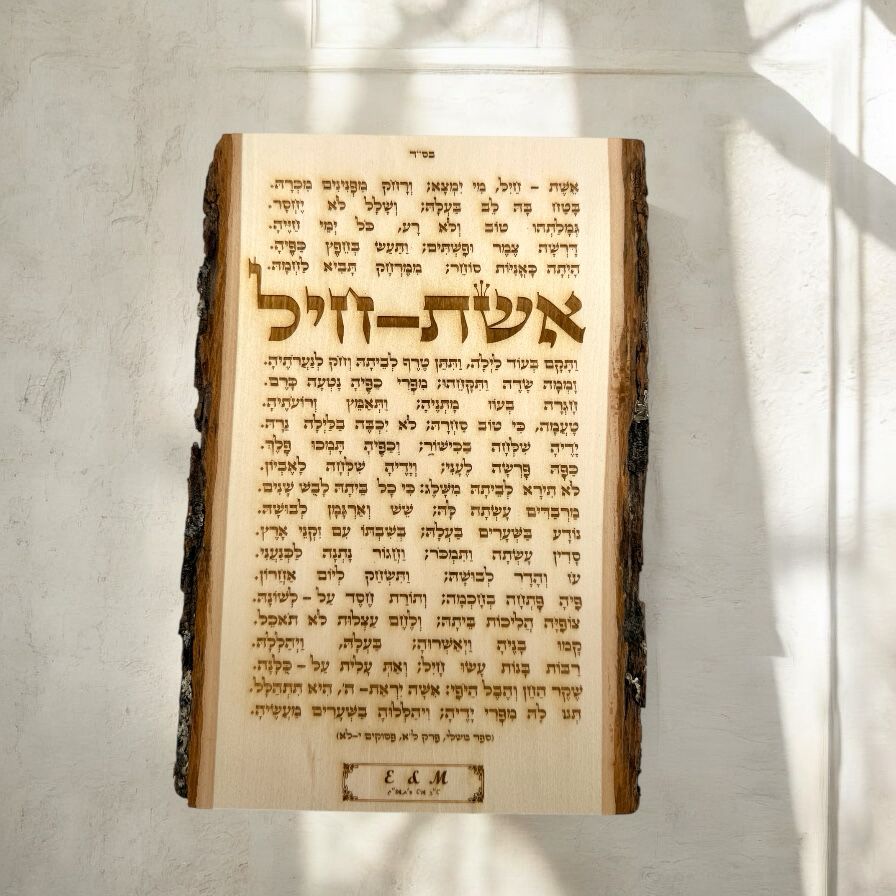 בס"ד
אֵשֶׁת - חַיִל, מִי יִמְצָא; וְרָחֹק מִפְּנִינִים מִכְרָהּ.
בָּטַח בָּהּ לֵב בַּעְלָהּ; וְשָׁלָל לֹא יֶחְסָר.
גְּמָלַתְהוּ טוֹב וְלֹא רָע, כֹּל יְמֵי חַיֶּיהָ.
דָּרְשָׁה צֶמֶר וּפִשְׁתִּים; וַתַּעַשׂ בְּחֵפֶץ כַּפֶּיהָ.
הָיְתָה כָּאֳנִיּוֹת סוֹחֵר; מִמֶּרְחָק תָּבִיא לַחְמָהּ.
אשת-חיל
וַתָּקָם בְּעוֹד לַיְלָה, וַתִּתֵּן טֶרֶף לְבֵיתָהּ וְחֹק לְנַעֲרֹתֶיהָ.
זָמְמָה שָׂדֶה וַתִּקָּחֵהוּ; מִפְּרִי כַפֶּיהָ נָטְעָה כָּרֶם.
חָגְרָה בְעוֹז מָתְנֶיהָ; וַתְּאַמֵּץ זְרוֹעֹתֶיהָ.
טָעֲמָה, כִּי טוֹב סַחְרָהּ; לֹא יִכְבֶּה בַּלַּיְלָה נֵרָהּ.
יָדֶיהָ שִׁלְּחָה בַכִּישׁוֹר; וְכַפֶּיהָ תָּמְכוּ פָלֶךְ.
כַּפָּהּ פָּרְשָׂה לֶעָנִי; וְיָדֶיהָ שִׁלְּחָה לָאֶבְיוֹן.
לֹא תִירָא לְבֵיתָהּ מִשָּׁלֶג: כִּי כָל בֵּיתָהּ לָבֻשׁ שָׁנִים.
מַרְבַדִּים עָשְׂתָה לָּהּ; שֵׁשׁ וְאַרְגָּמָן לְבוּשָׁהּ.
נוֹדָע בַּשְּׁעָרִים בַּעְלָהּ; בְּשִׁבְתּוֹ עִם זִקְנֵי אָרֶץ.
סָדִין עָשְׂתָה וַתִּמְכֹּר; וַחֲגוֹר נָתְנָה לַכְּנַעֲנִי.
עֹז וְהָדָר לְבוּשָׁהּ; וַתִּשְׂחַק לְיוֹם אַחֲרוֹן.
פִּיהָ פָּתְחָה בְחָכְמָה; וְתוֹרַת חֶסֶד עַל - לְשׁוֹנָהּ.
צוֹפִיָּה הֲלִיכוֹת בֵּיתָהּ; וְלֶחֶם עַצְלוּת לֹא תֹאכֵל.
קָמוּ בָנֶיהָ וַיְאַשְּׁרוּהָ; בַּעְלָהּ, וַיְהַלְלָהּ.
רַבּוֹת בָּנוֹת עָשׂוּ חָיִל; וְאַתְּ עָלִית עַל - כֻּלָּנָה.
שֶׁקֶר הַחֵן וְהֶבֶל הַיֹּפִי: אִשָּׁה יִרְאַת- ה', הִיא תִתְהַלָּל.
תְּנוּ לָהּ מִפְּרִי יָדֶיהָ; וִיהַלְלוּהָ בַשְּׁעָרִים מַעֲשֶׂיהָ.
(ספר משלי, פרק ל"א, פסוקים י-לא)
E & M